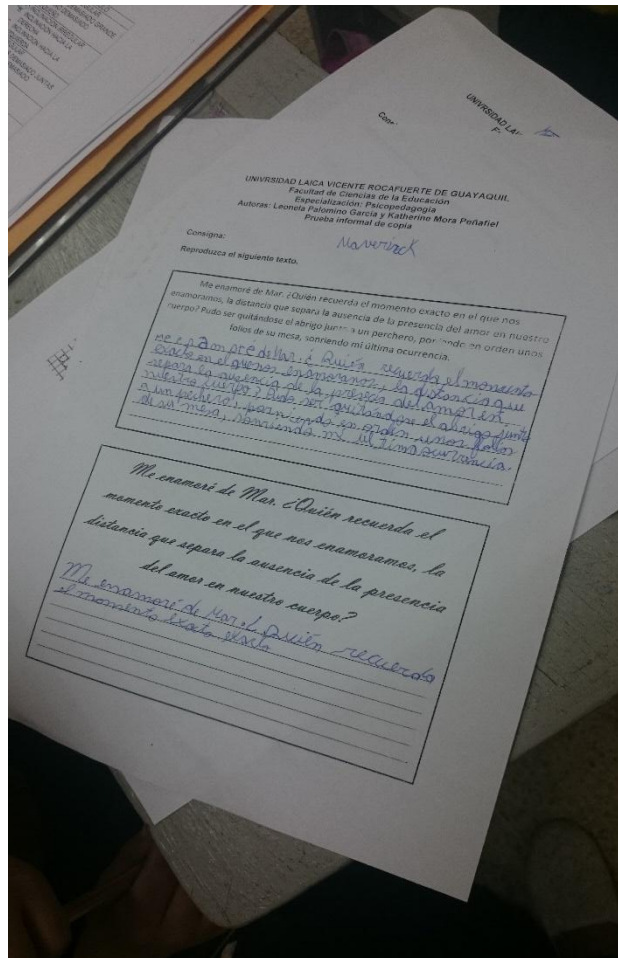 UNIVRSIDAD LAI
Cons
UNIVRSIDAD LAICA VICENTE ROCAFUERTE DE GUAYAQUIL
Facultad de Ciencias de la Educación
Especialización: Psicopedagogía
Autoras: Leonela Palomino García y Katherine Mora Peñafiel
Prueba informal de copia
Consigna:
Maverick
Reproduzca el siguiente texto.
Me enamoré de Mar. ¿Quién recuerda el momento exacto en el que nos
enamoramos, la distancia que separa la ausencia de la presencia del amor en nuestro
cuerpo? Pudo ser quitándose el abrigo junto a un perchero, poniendo en orden unos
folios de su mesa, sonriendo mi última ocurrencia.
de Mar. ¿ Quién recuerda el momento
exacto en el que nos enamoramos, la distancia que
separa la ausencia de la del amor en
nuestro cuerpo? Pudo ser quitandose el abrigo junto
a un pechero, poniendo en orden unos folios
de su mesa, sonriendo mi ultima
Me enamoré de Mar. ¿Quién recuerda el
momento exacto en el que nos enamoramos, la
distancia que separa la ausencia de la presencia
del amor en nuestro cuerpo?
Me enamoré de Mar. ¿ Quién recuerda
el momento exacto